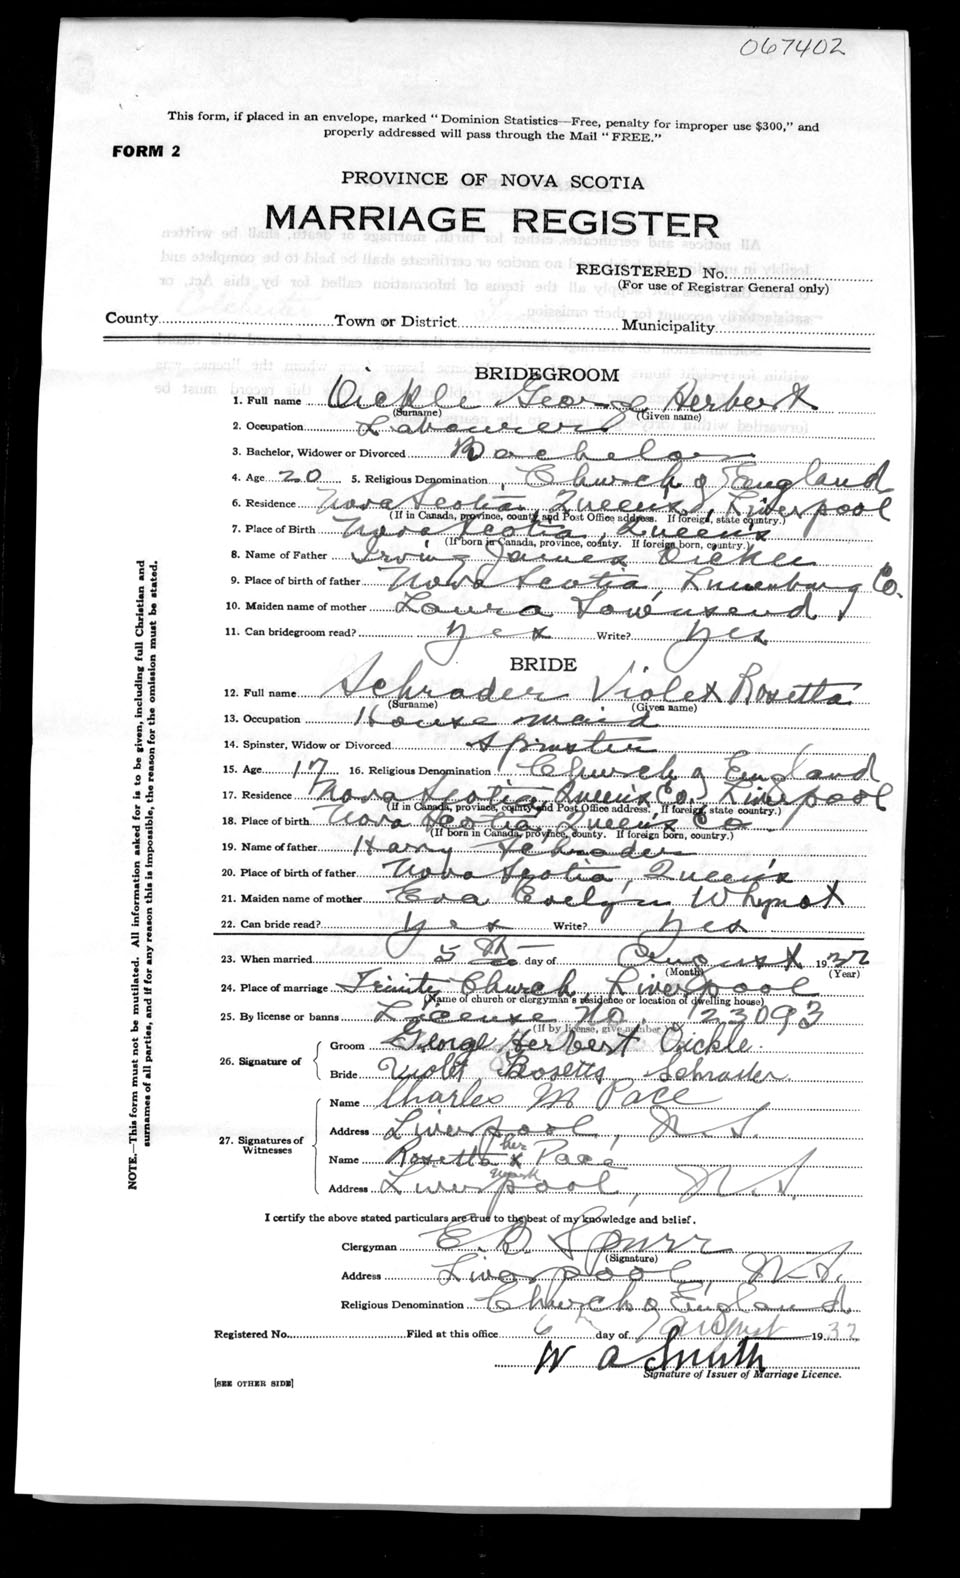 067402
This form, if placed in an envelope, marked "Dominion Statistics—Free, penalty for improper use $300," and
properly addressed will pass through the Mail "FREE."
FORM 2
PROVINCE OF NOVA SCOTIA
MARRIAGE REGISTER
REGISTERED No.
(For use of Registrar General only)
County Town or District Municipality
BRIDEGROOM
1. Full name Oickle George Herbert
(Surname) (Given name)
2. Occupation Labourer
3. Bachelor, Widower or Divorced Bachelor
4. Age 20 5. Religious Denomination Church of England
6. Residence Nova Scotia, Queen's, Liverpool
(If in Canada, province, county and Post Office address. If foreign, state country.)
7. Place of Birth Nova Scotia, Queen's
(If born in Canada, province, county. If foreign born, country.)
8. Name of Father Irving James Oickle
9. Place of birth of father Nova Scotia, Lunenburg Co.
10. Maiden name of mother Laura Townsend
11. Can bridegroom read? yes Write? yes
BRIDE
12. Full name Schrader Violet Rosetta
(Surname) (Given name)
13. Occupation House maid
14. Spinster, Widow or Divorced Spinster
15. Age 17 16. Religious Denomination Church of England
17. Residence Nova Scotia, Queen's Co., Liverpool
(If in Canada, province, county and Post Office address. If foreign, state country.)
18. Place of birth Nova Scotia, Queen's Co
(If born in Canada, province, county. If foreign born, country.)
19. Name of father Harry Schrader
20. Place of birth of father Nova Scotia, Queen's
21. Maiden name of mother Eva Evelyn Whynot
22. Can bride read? yes Write? yes
23. When married 5th day of August 1932
(Month) (Year)
24. Place of marriage Trinity Church, Liverpool
(Name of church or clergyman's residence or location of dwelling house)
25. By license or banns License No. 123093
(If by license, give number)
26. Signature of
Groom George Herbert Oickle.
Bride Violet Rosetta Schrader.
27. Signatures of Witnesses
Name Charles M Pace
Address Liverpool, N.S.
her
Name Rosetta x Pace
mark
Address Liverpool, N.S.
I certify the above stated particulars are true to the best of my knowledge and belief.
Clergyman E. B. Spurr
(Signature)
Address Liverpool, N.S.
Religious Denomination Church of England
Registered No. Filed at this office 6th day of August 1932
W A Smith
Signature of Issuer of Marriage Licence.
[SEE OTHER SIDE]
NOTE.—This form must not be mutilated. All information asked for is to be given, including full Christian and
surnames of all parties, and if for any reason this is impossible, the reason for the omission must be stated.